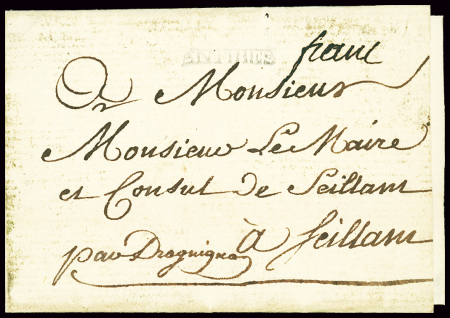 ANTIBES
franc
A Monsieur
Monsieur Le Maire
et Consul de Seillans
par Draguignan À Seillans